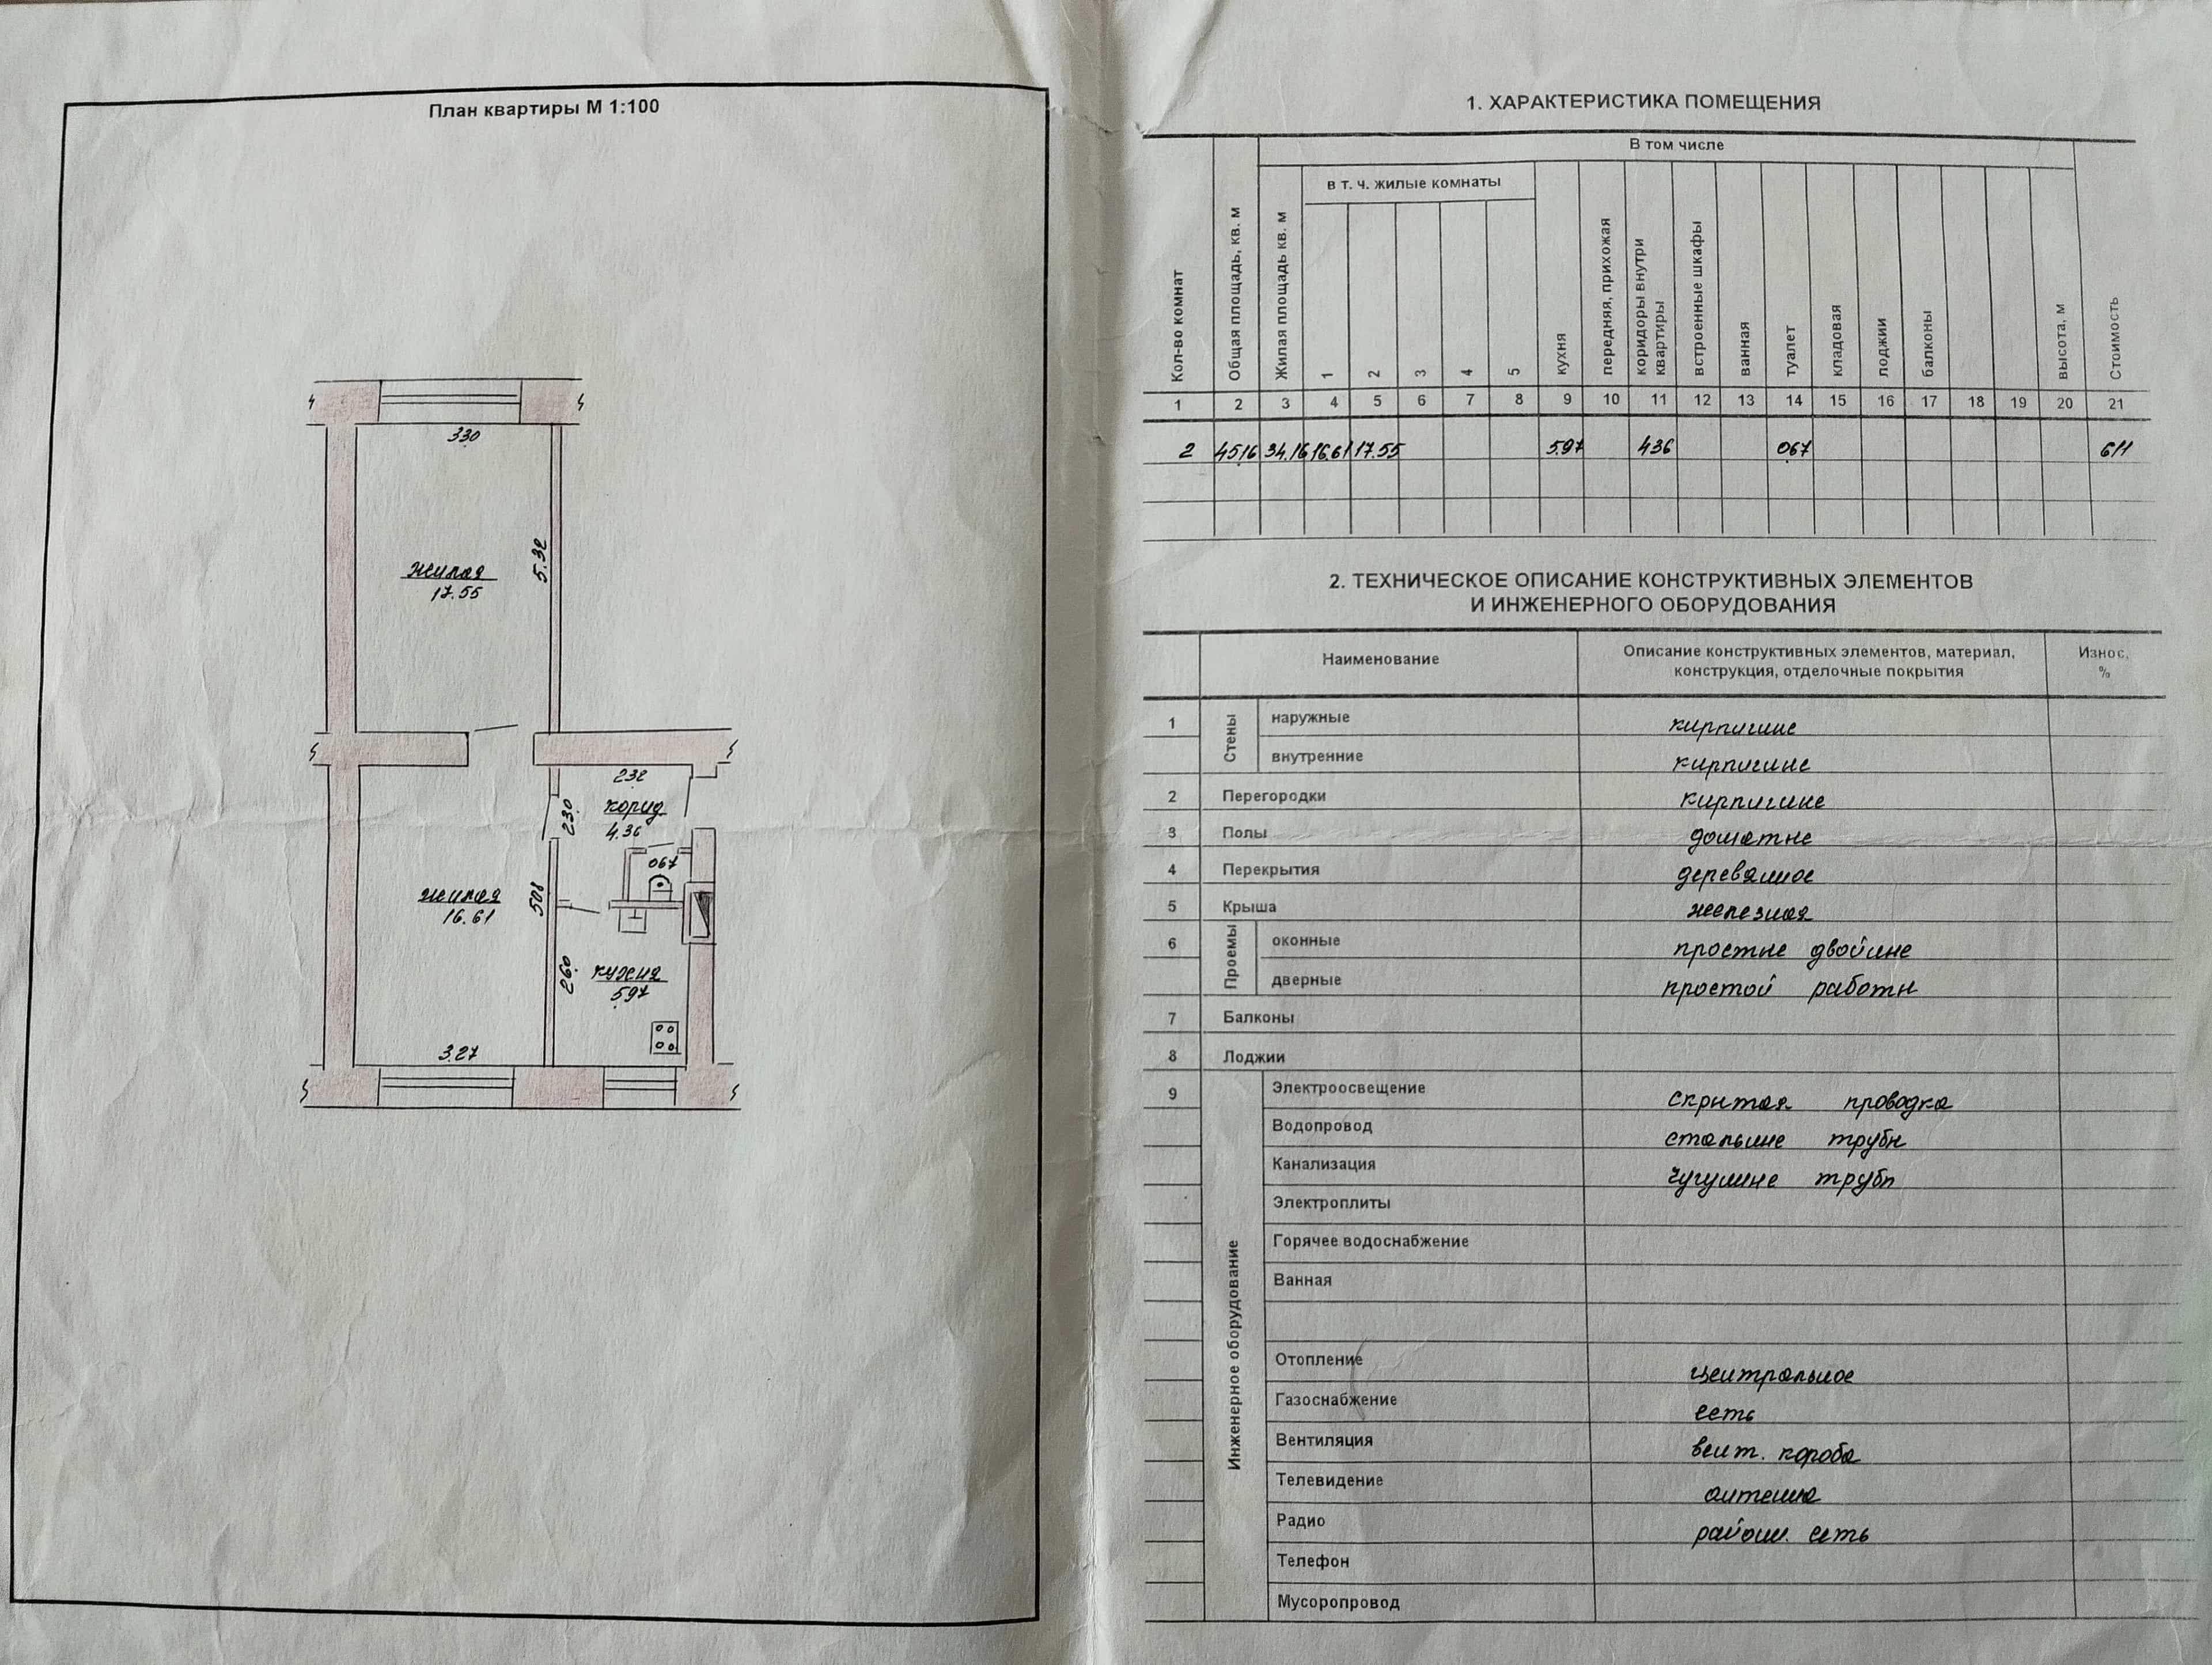 План квартиры М 1:100
330
5.32
жилая
17.55
232
230
корид
4.36
067
жилая
16.61
508
260
кухня
5.97
3.27
1. ХАРАКТЕРИСТИКА ПОМЕЩЕНИЯ
Кол-во комнат
Общая площадь, кв. м
В том числе
Жилая площадь кв. м
в т. ч. жилые комнаты
1 2 3 4 5
кухня
передняя, прихожая
коридоры внутри
квартиры
встроенные шкафы
ванная
туалет
кладовая
лоджии
балконы
высота, м
Стоимость
1 2 3 4 5 6 7 8 9 10 11 12 13 14 15 16 17 18 19 20 21
2 45.16 34.16 16.61 17.55 5.97 4.36 067 611
2. ТЕХНИЧЕСКОЕ ОПИСАНИЕ КОНСТРУКТИВНЫХ ЭЛЕМЕНТОВ
И ИНЖЕНЕРНОГО ОБОРУДОВАНИЯ
Наименование
Описание конструктивных элементов, материал,
конструкция, отделочные покрытия
Износ,
%
1 Стены наружные кирпичные
внутренние кирпичные
2 Перегородки кирпичные
3 Полы дощатые
4 Перекрытия деревянное
5 Крыша железная
6 Проемы оконные простые двойные
дверные простой работы
7 Балконы
8 Лоджии
9 Инженерное оборудование Электроосвещение скрытая проводка
Водопровод стальные трубы
Канализация чугунные трубы
Электроплиты
Горячее водоснабжение
Ванная
Отопление центральное
Газоснабжение есть
Вентиляция вент. короба
Телевидение антенна
Радио сеть
Телефон
Мусоропровод